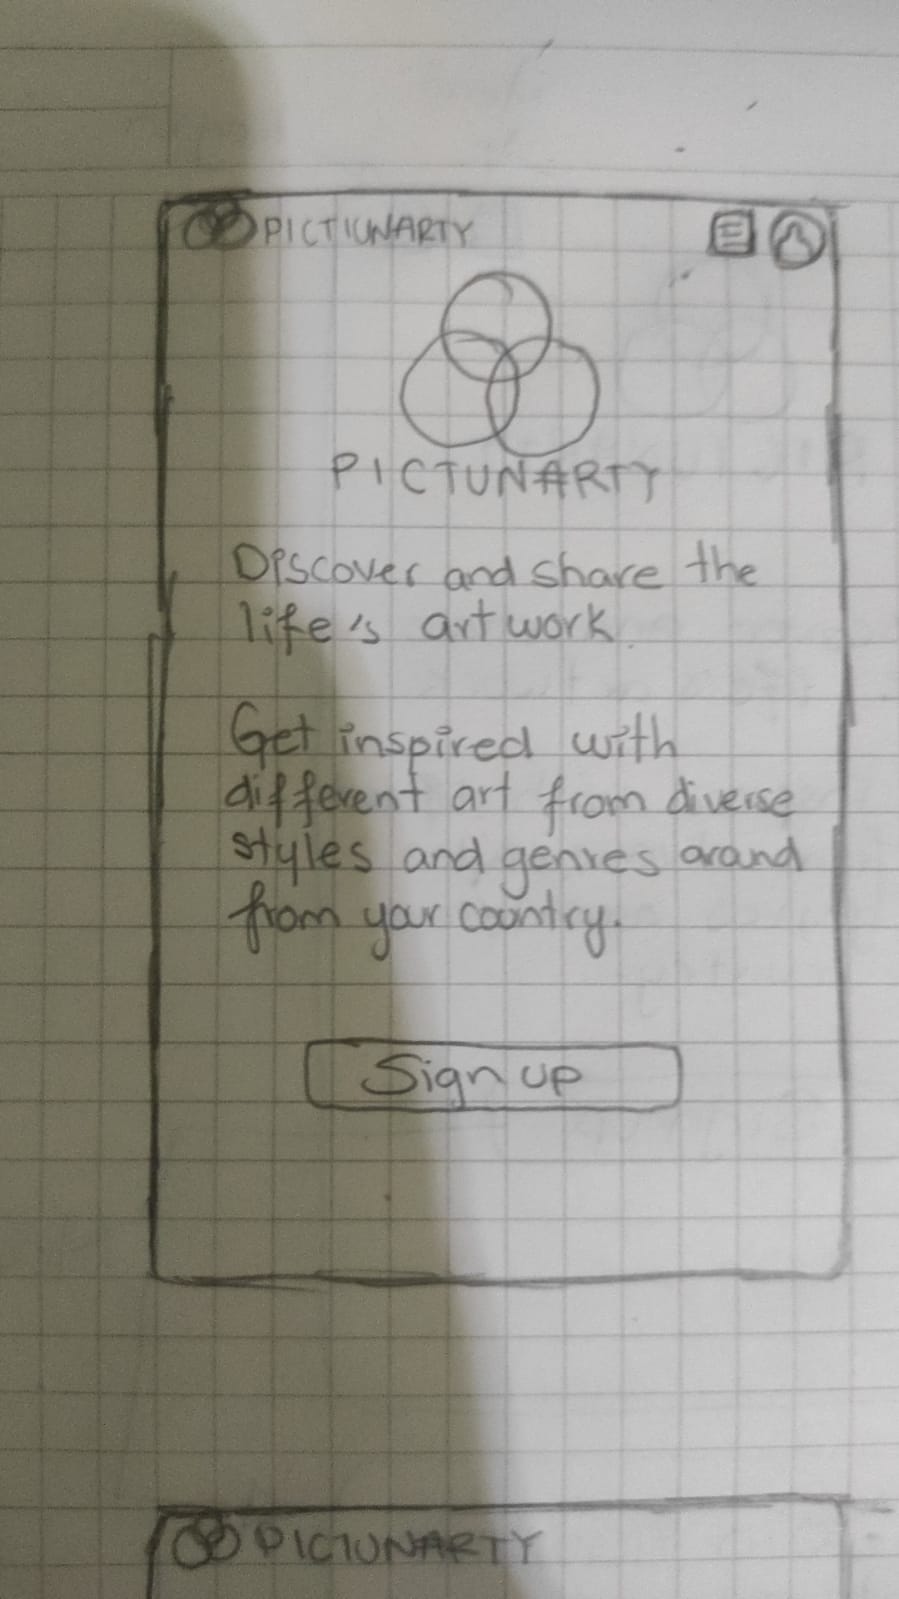 PICTIUNARTY
PICTUNARTY
Discover and share the
life's artwork.
Get inspired with
different art from diverse
styles and genres arand
from your country.
Sign up
PICTUNARTY